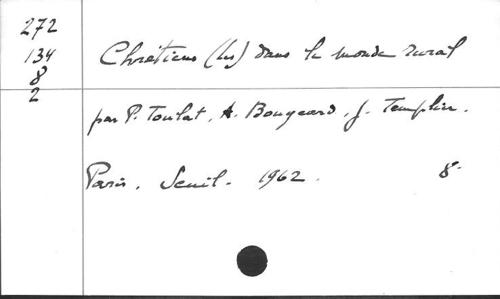 272
134
8
2
Chrétiens (les) dans le monde rural
par P. Toulat, A. Bougeard, J. Templier.
Paris. Seuil. 1962. 8.